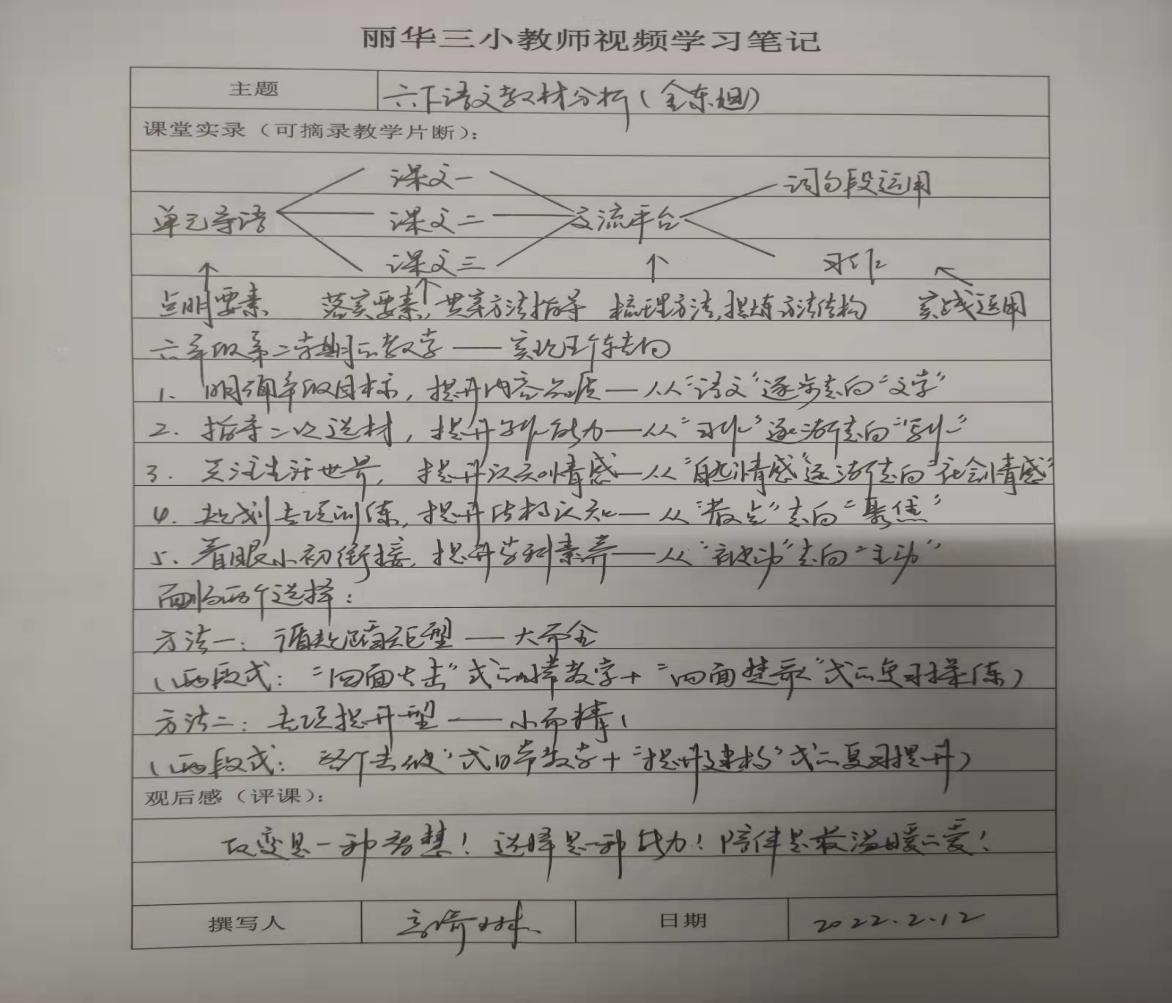 丽华三小教师视频学习笔记
主题 六下语文教材分析（金东旭）
课堂实录（可摘录教学片断）：
课文一 词句段运用
单元导语 课文二 交流平台
课文三 习作
点明要素 落实要素，贯穿方法指导 梳理方法，提炼方法结构 实践运用
六年级第二学期的教学——实现五个转向
1、明确年段目标，提升内容品质——从“语文”逐步走向“文学”
2、指导二次选材，提升写作能力——从“习作”逐渐走向“写作”
3、关注生活世界，提升认知情感——从“自然情感”逐渐走向“社会情感”
4、规划专项训练，提升结构认知——从“散点”走向“聚焦”
5、着眼小初衔接，提升学科素养——从“被动”走向“主动”
面临两个选择：
方法一：循规蹈矩型——大而全
（两段式：“四面出击”式的日常教学+“四面楚歌”式的复习操练）
方法二：专项提升型——小而精
（两段式：“各个击破”式日常教学+“提升建构”式的复习提升）
观后感（评课）：
改变是一种智慧！选择是一种能力！陪伴是最温暖的爱！
撰写人 日期 2022.2.12